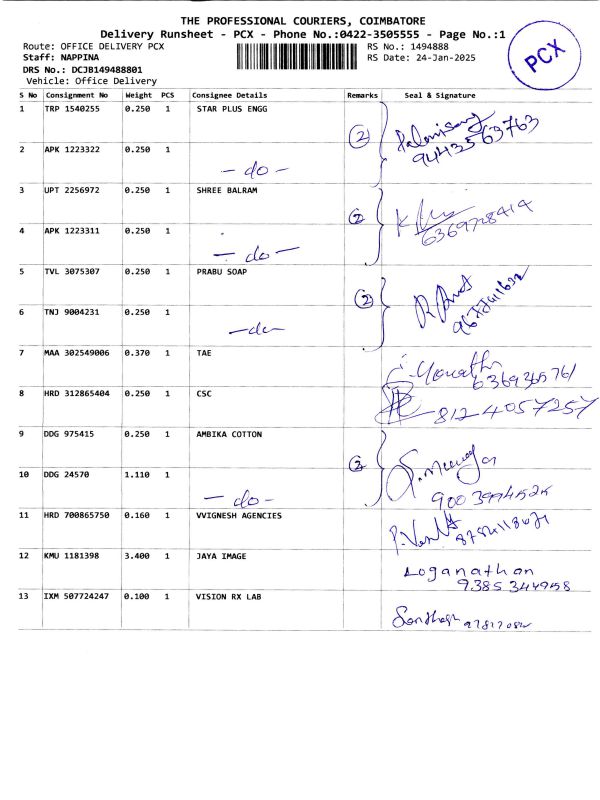 THE PROFESSIONAL COURIERS, COIMBATORE
Delivery Runsheet - PCX - Phone No.:0422-3505555 - Page No.:1
Route: OFFICE DELIVERY PCX RS No.: 1494888
Staff: NAPPINA RS Date: 24-Jan-2025
DRS No.: DCJB149488801
Vehicle: Office Delivery
PCX
S No Consignment No Weight PCS Consignee Details Remarks Seal & Signature
1 TRP 1540255 0.250 1 STAR PLUS ENGG
2 9443563763
2 APK 1223322 0.250 1 - do -
3 UPT 2256972 0.250 1 SHREE BALRAM
2 6369728414
4 APK 1223311 0.250 1 - do -
5 TVL 3075307 0.250 1 PRABU SOAP
2
6 TNJ 9004231 0.250 1 - do -
7 MAA 302549006 0.370 1 TAE 6369365761
8 HRD 312865404 0.250 1 CSC 8124057257
9 DDG 975415 0.250 1 AMBIKA COTTON
2
10 DDG 24570 1.110 1 - do -
11 HRD 700865750 0.160 1 VVIGNESH AGENCIES
12 KMU 1181398 3.400 1 JAYA IMAGE Loganathan
9385344958
13 IXM 507724247 0.100 1 VISION RX LAB Santhosh